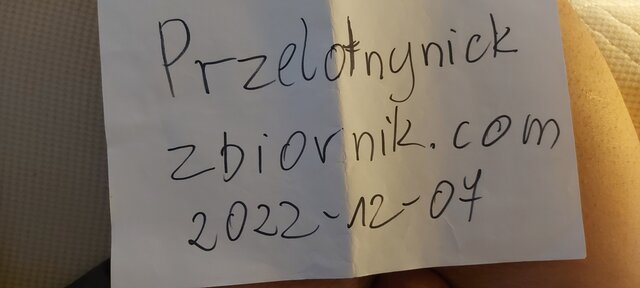 Przelotnynick
zbiornik.com
2022-12-07